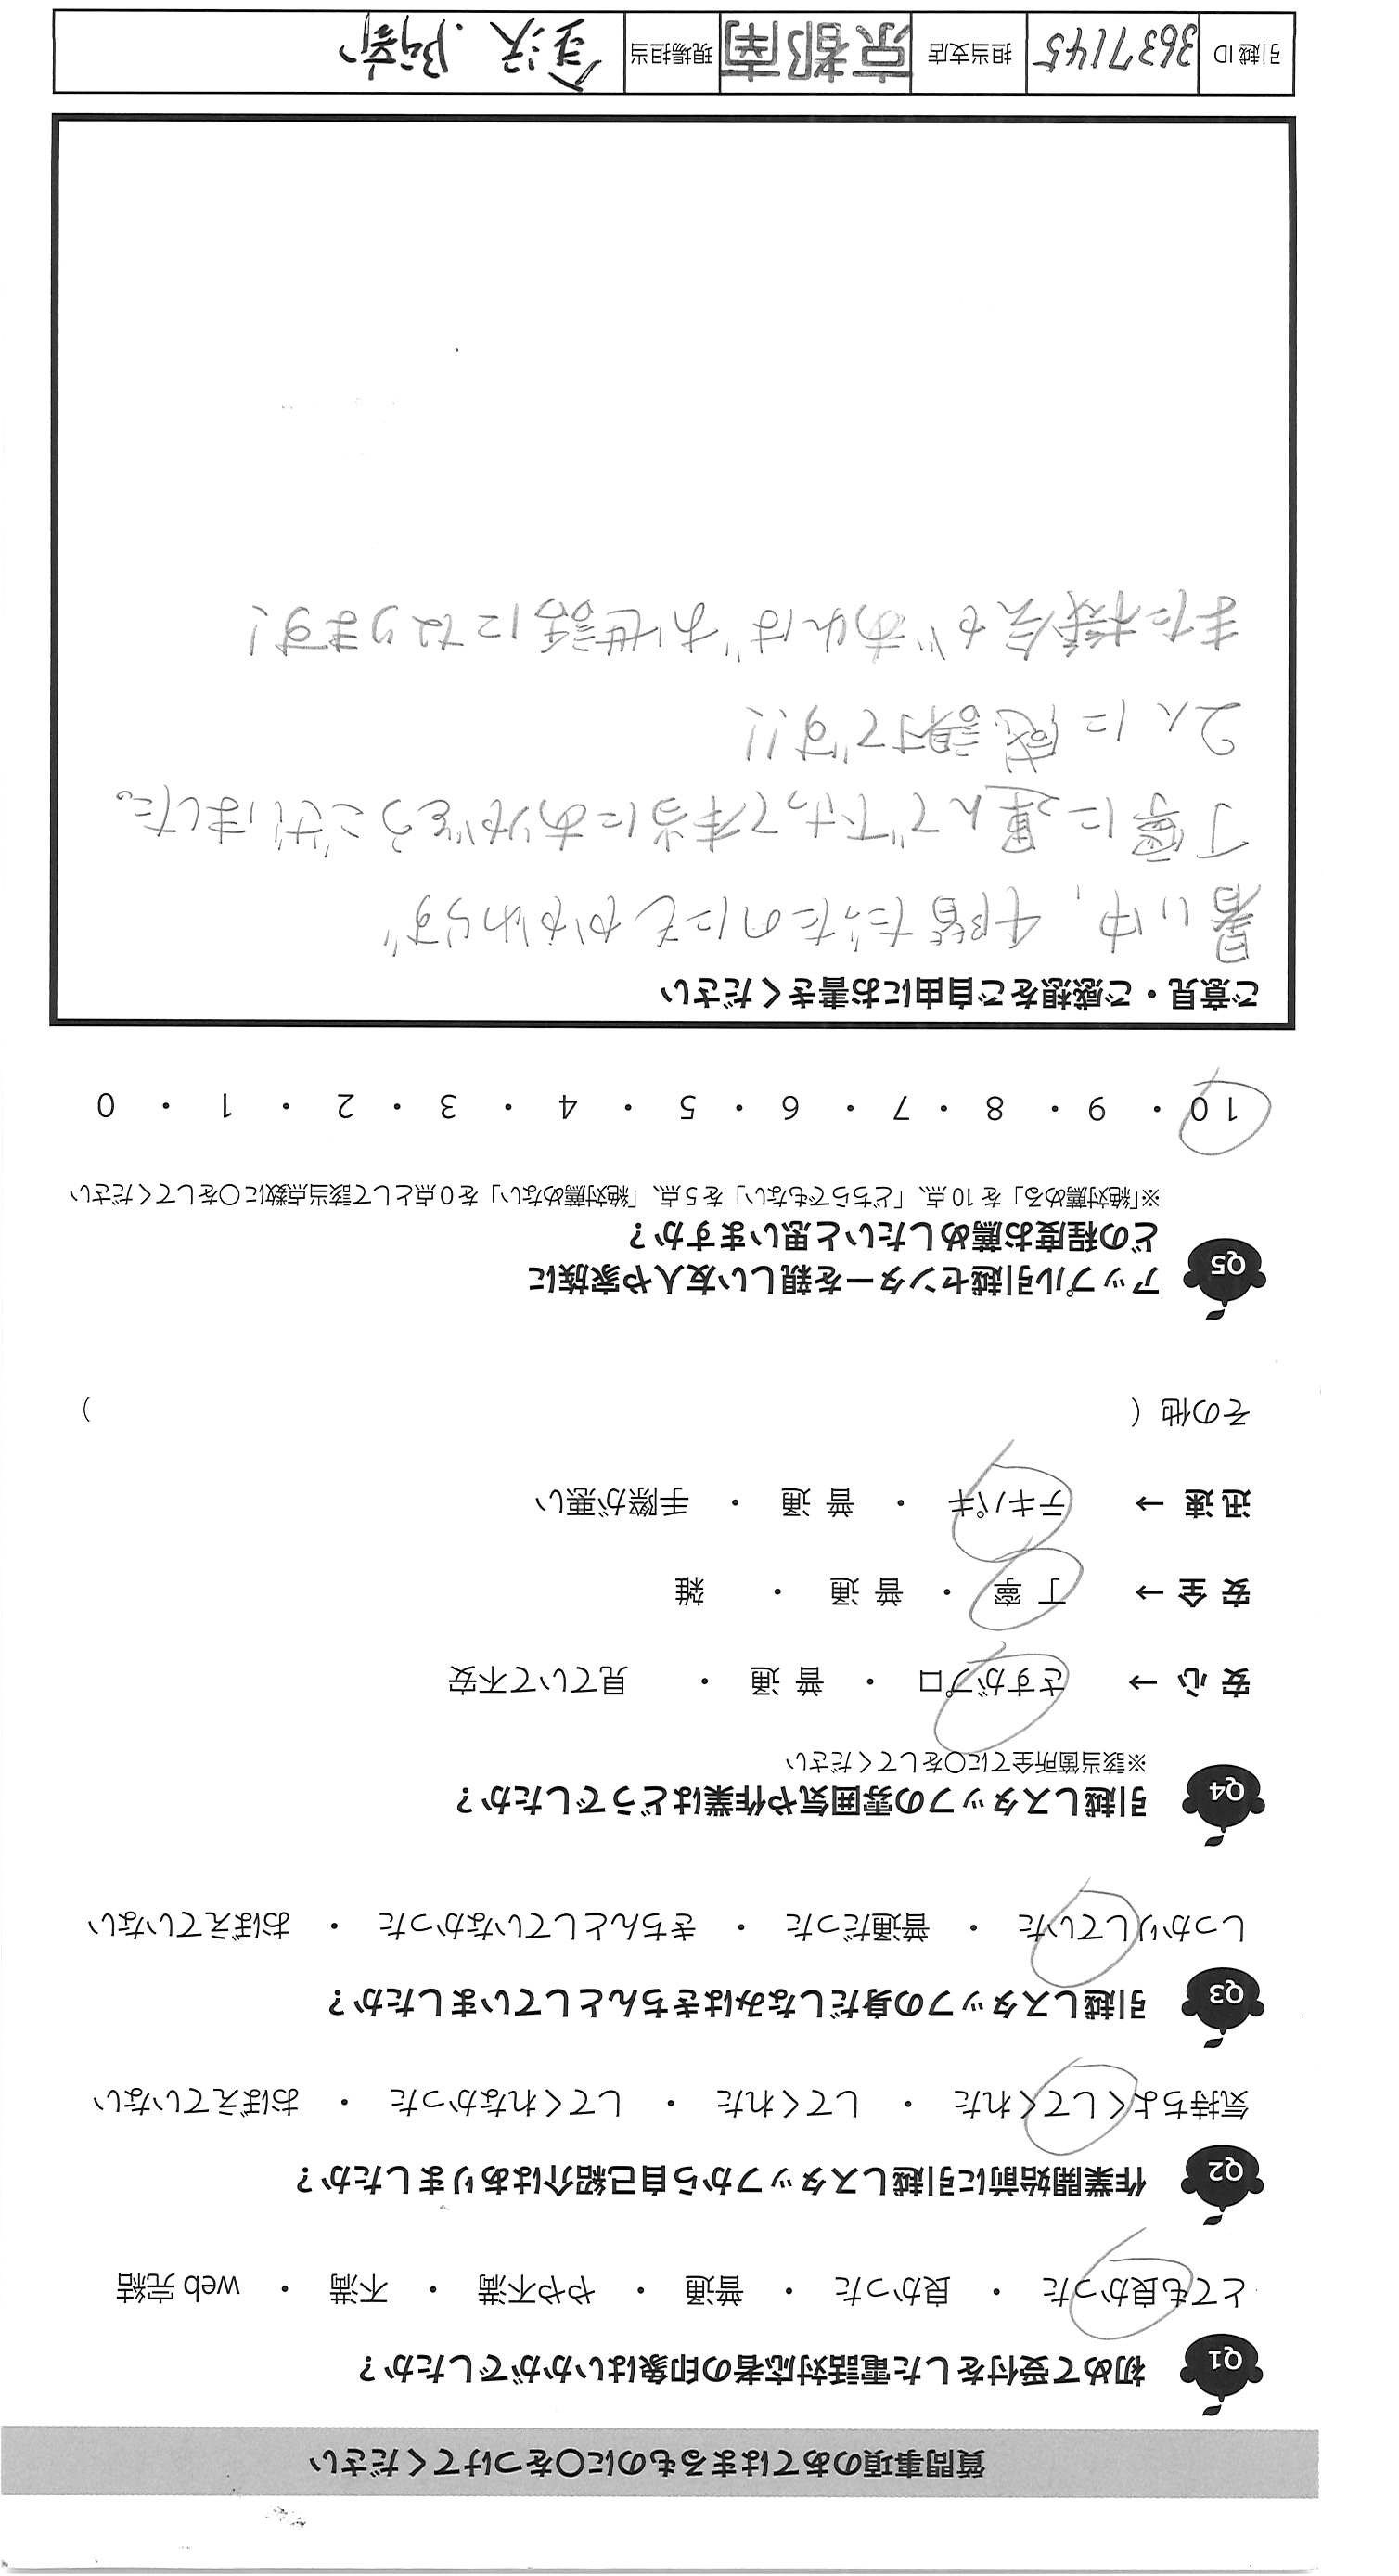 質問事項のあてはまるものに〇をつけてください
Q1 初めて受付をした電話対応者の印象はいかがでしたか？
とても良かった ・ 良かった ・ 普通 ・ やや不満 ・ 不満 ・ web 完結
Q2 作業開始前に引越しスタッフから自己紹介はありましたか？
気持ちよくしてくれた ・ してくれた ・ してくれなかった ・ おぼえていない
Q3 引越しスタッフの身だしなみはきちんとしていましたか？
しっかりしていた ・ 普通だった ・ きちんとしていなかった ・ おぼえていない
Q4 引越しスタッフの雰囲気や作業はどうでしたか？
※該当箇所全てに〇をしてください
安 心 → さすがプロ ・ 普 通 ・ 見ていて不安
安 全 → 丁 寧 ・ 普 通 ・ 雑
迅 速 → テキパキ ・ 普 通 ・ 手際が悪い
その他（ ）
Q5 アップル引越センターを親しい友人や家族に
どの程度お薦めしたいと思いますか？
※「絶対薦める」を 10 点、「どちらでもない」を 5 点、「絶対薦めない」を 0 点として該当点数に〇をしてください
10 ・ 9 ・ 8 ・ 7 ・ 6 ・ 5 ・ 4 ・ 3 ・ 2 ・ 1 ・ 0
ご意見・ご感想をご自由にお書きください
暑い中、4階だったのにもかかわらず
丁寧に運んで下さって本当にありがとうございました。
2人に感謝です!!
また機会があればお世話になります!
引越 ID 3637145 担当支店 京都南 現場担当 金沢.